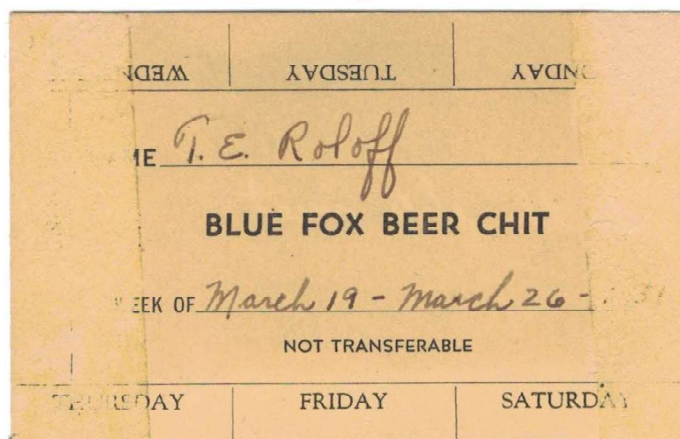 WEDN TUESDAY NDAY
ME T. E. Roloff
BLUE FOX BEER CHIT
WEEK OF March 19 - March 26 -
NOT TRANSFERABLE
THURSDAY FRIDAY SATURDAY